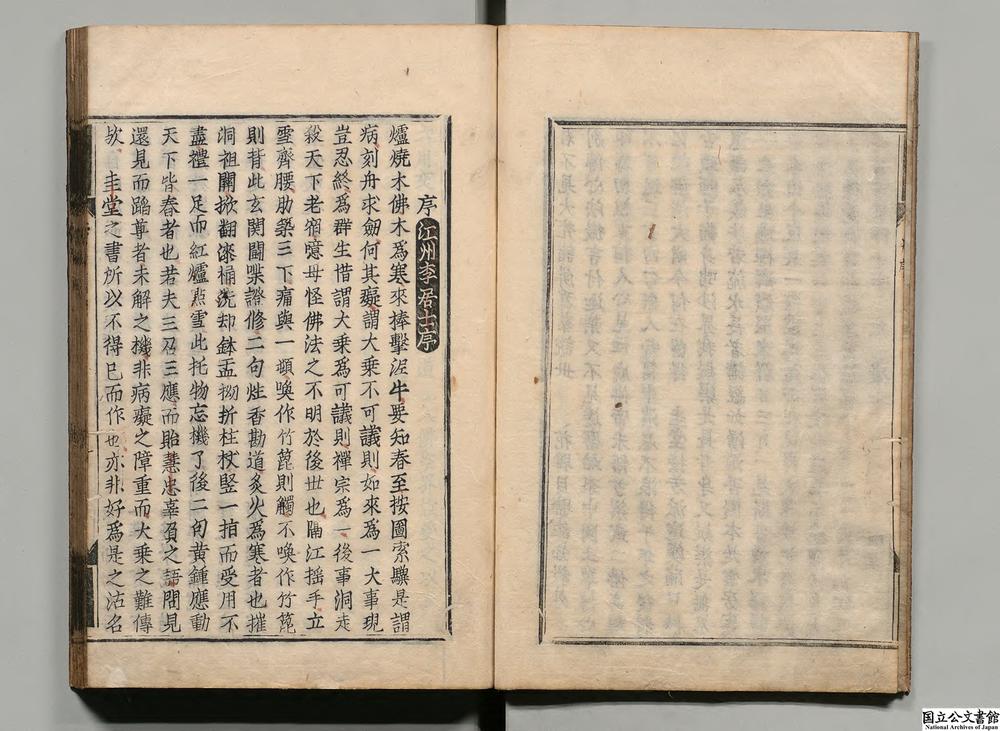 序 江州李居士序
爐燒木佛木爲寒來捧擊泥牛要知春至按圖索驥是謂
病刻舟求劍何其癡謂大乗不可議則如來爲一大事現
豈忍終爲群生惜謂大乗爲可議則禪宗爲一後事洞走
殺天下老宿噫毋怪佛法之不明於後世也隔江揺手立
雪齊腰肋築三下痛與一頓喚作竹篦則觸不喚作竹篦
則背此玄関闢喋諮修二句炷香勘道炙火爲寒者也摧
洞祖關掀翻漆桶洗却鉢盂拗折柱杖竪一拍而受用不
盡禮一足而紅爐点雪此托物忘機了後二句黄鍾應動
天下皆春者也若夫三召三應而貽慧忠辜負之語問見
還見而蹈尊者未解之機非病癡之障重而大乗之難傳
欤 圭堂之書所以不得已而作也亦非好爲是之沽名
国立公文書館
National Archives of Japan